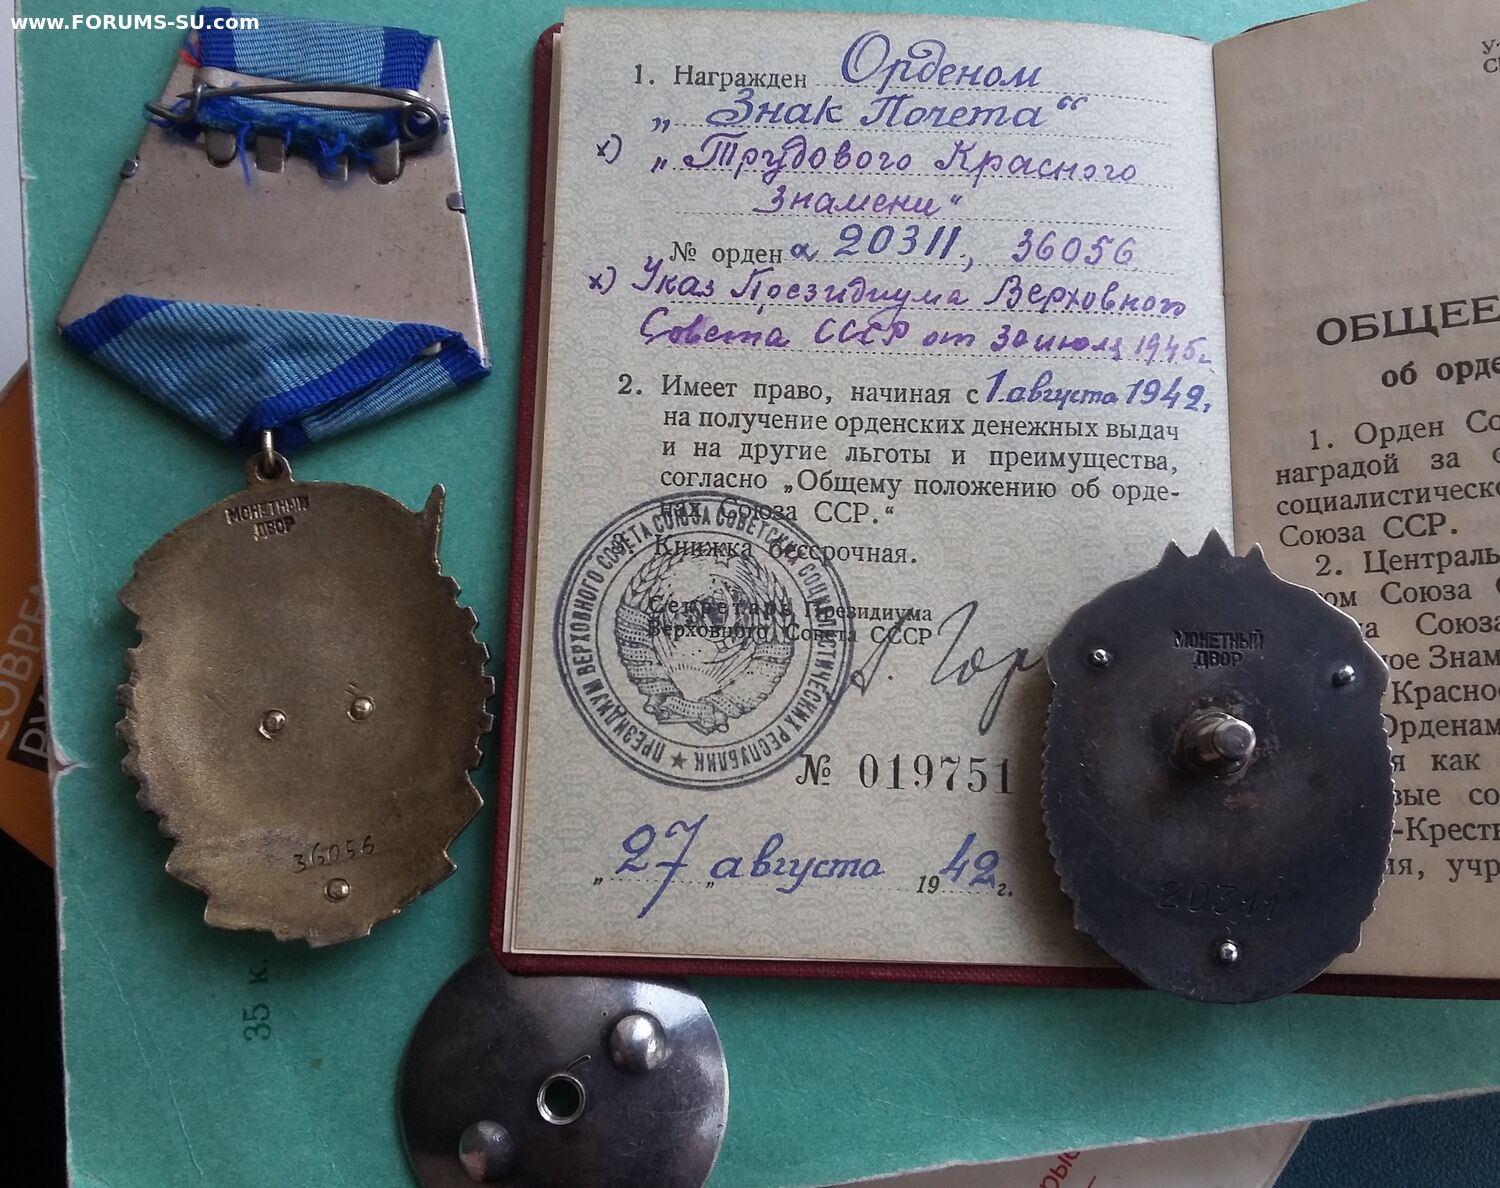 www.FORUMS-SU.com
1. Награжден Орденом
„ Знак Почета“
х) „Трудового Красного
Знамени“
№ орден а 20311, 36056
х) Указ Президиума Верховного
Совета СССР от 30 июля 1945г.
2. Имеет право, начиная с 1 августа 1942,
на получение орденских денежных выдач
и на другие льготы и преимущества,
согласно „Общему положению об орде-
нах Союза ССР.“
Книжка бессрочная.
Секретарь Президиума
Верховного Совета СССР
ПРЕЗИДИУМ ВЕРХОВНОГО СОВЕТА СОЮЗА СОВЕТСКИХ СОЦИАЛИСТИЧЕСКИХ РЕСПУБЛИК
№ 019751
„27„ августа 1942г.
ОБЩЕЕ
об орде
1. Орден Со
наградой за
социалистическо
Союза ССР.
2. Централь
ом Союза
Союза
ное Знам
Красно
Орденам
я как
вые со
-Кресть
ия, учр
МОНЕТНЫЙ
ДВОР
36056
МОНЕТНЫЙ
ДВОР
20311
35 к.